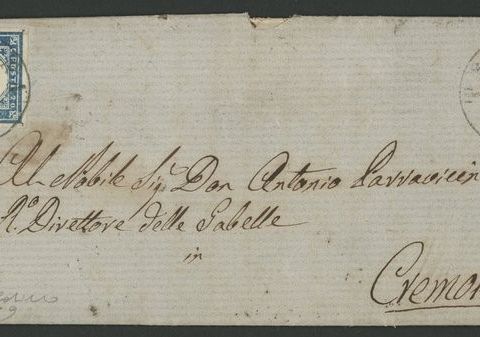 C. POSTE 20
Al Nobile Sig.r Don Antonio Parravicin
R.o Direttore delle Gabelle
in
Cremon